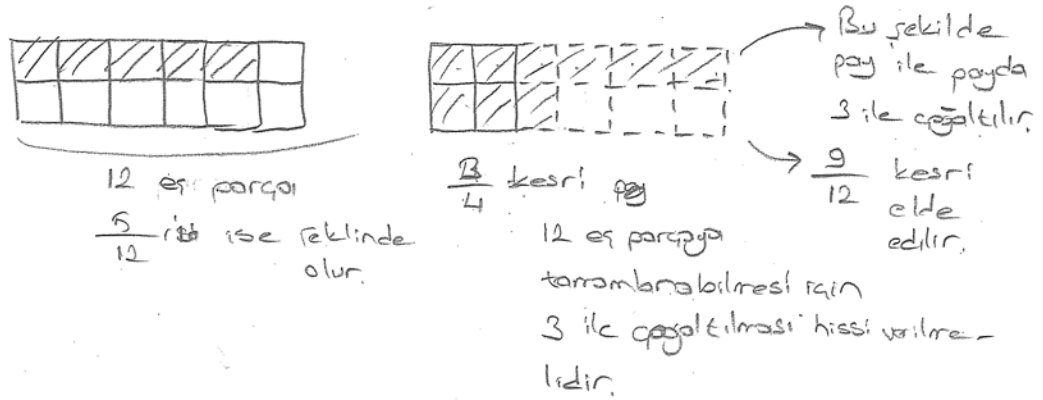 12 eş parça
5/12 ise şeklinde
olur.
3/4 kesri
12 eş parçaya
tamamlanabilmesi için
3 ile çoğaltılması hissi verilme-
lidir.
Bu şekilde
pay ile payda
3 ile çoğaltılır.
9/12 kesri
elde
edilir.